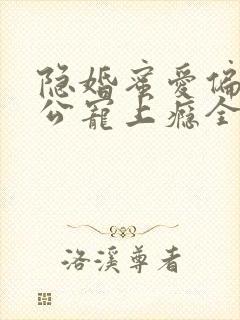 隐婚蜜爱偏
公宠上瘾全
洛溪尊者